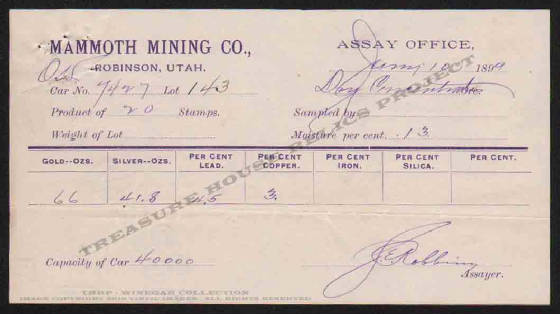 MAMMOTH MINING CO., ASSAY OFFICE,
ROBINSON, UTAH. 10 1899
Car No. 7427 Lot 143
Product of 20 Stamps. Sampled by
Weight of Lot Moisture per cent. .13
GOLD--OZS. SILVER--OZS. PER CENT LEAD. PER CENT COPPER. PER CENT IRON. PER CENT SILICA. PER CENT.
.66 41.8 4.5 3.
Capacity of Car 40000 Robbins
Assayer.
TREASURE HOUSE RELICS PROJECT
THRP - WINEGAR COLLECTION
IMAGE COPYRIGHT 2010 VINYL IMAGES. ALL RIGHTS RESERVED